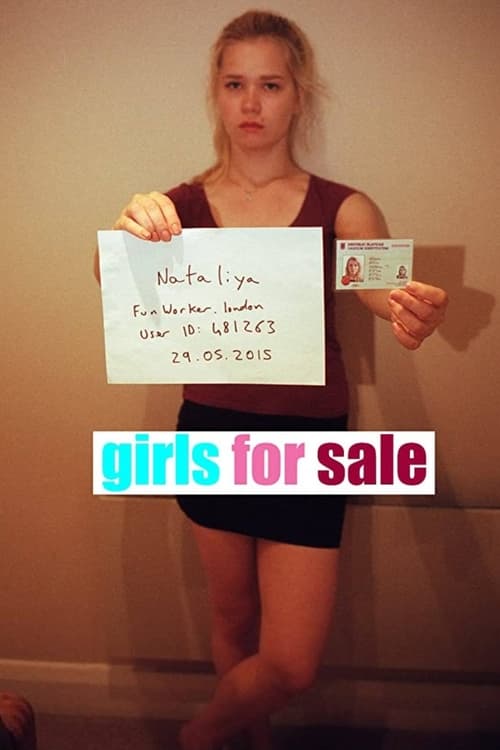 Nataliya
Fun Worker. london
User ID: 481263
29.05.2015
girls for sale